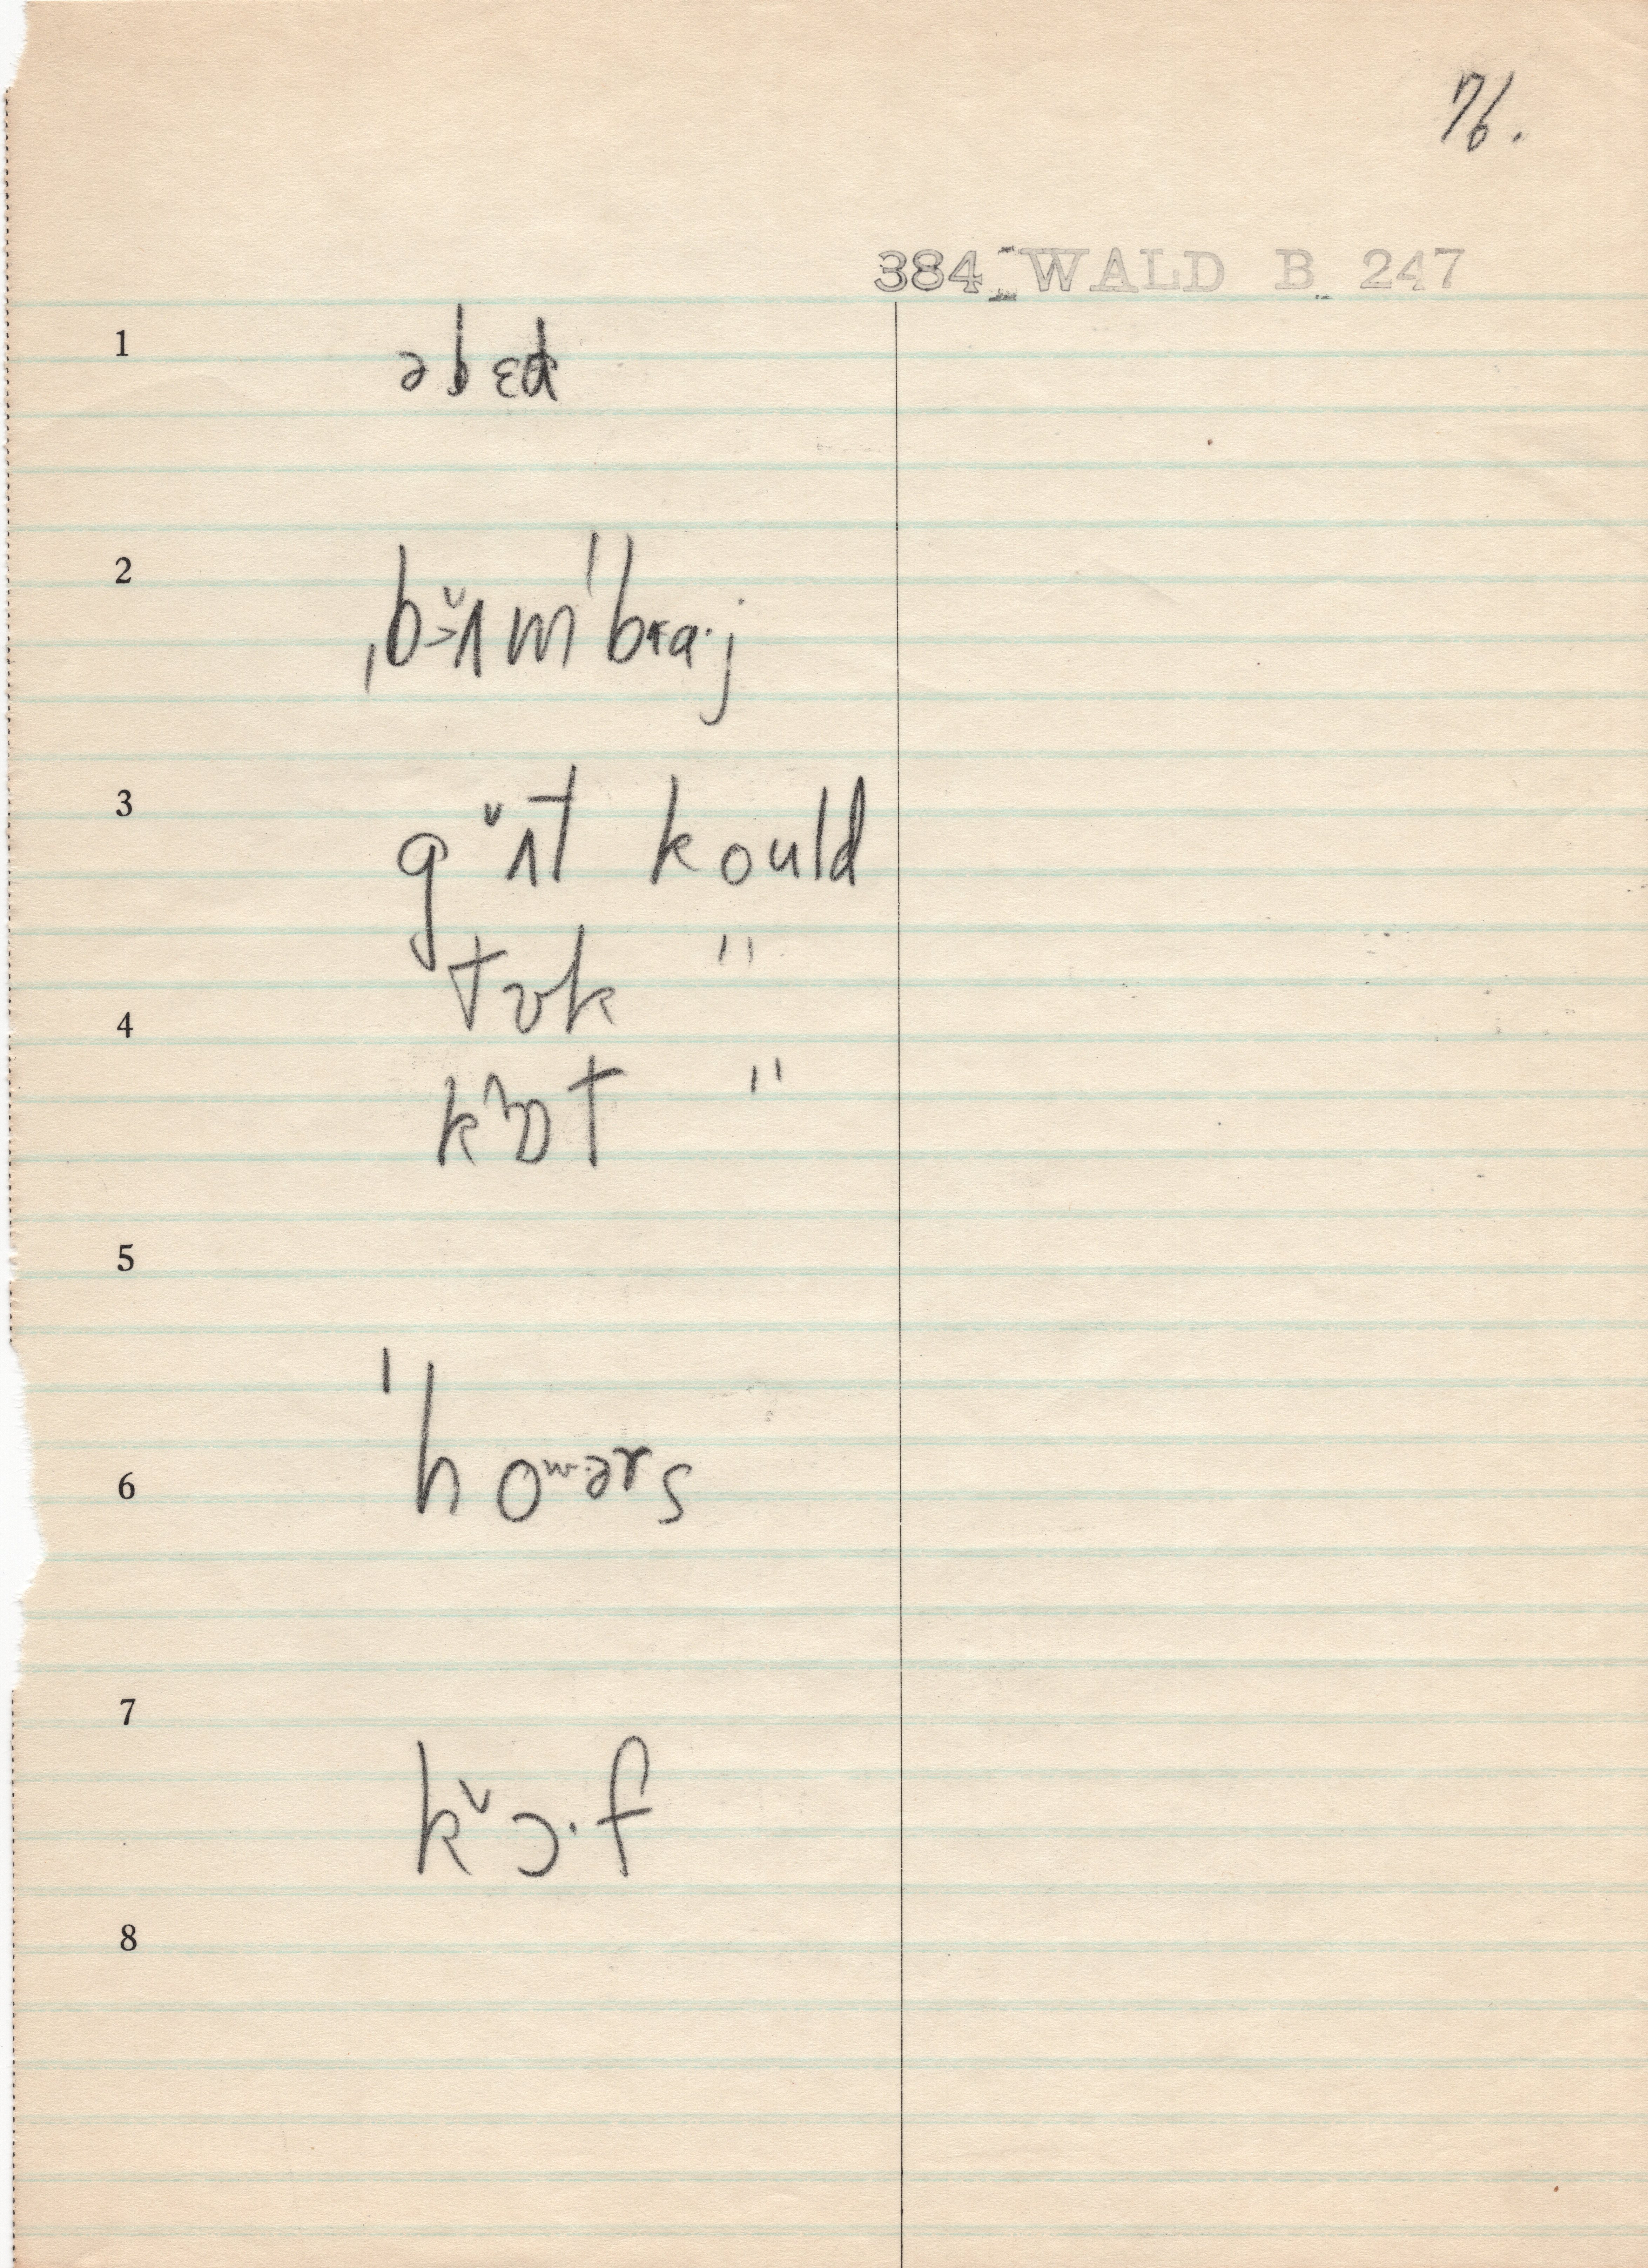 76.
384 WALD B 247
1 əbɛd
2 ˌbɔ̌ɪmˈbraˑj
3 gɔ̌t kould
tʊk "
4
kɒt "
5
ˈhoʷərs
6
7
kɔ̌ˑf
8